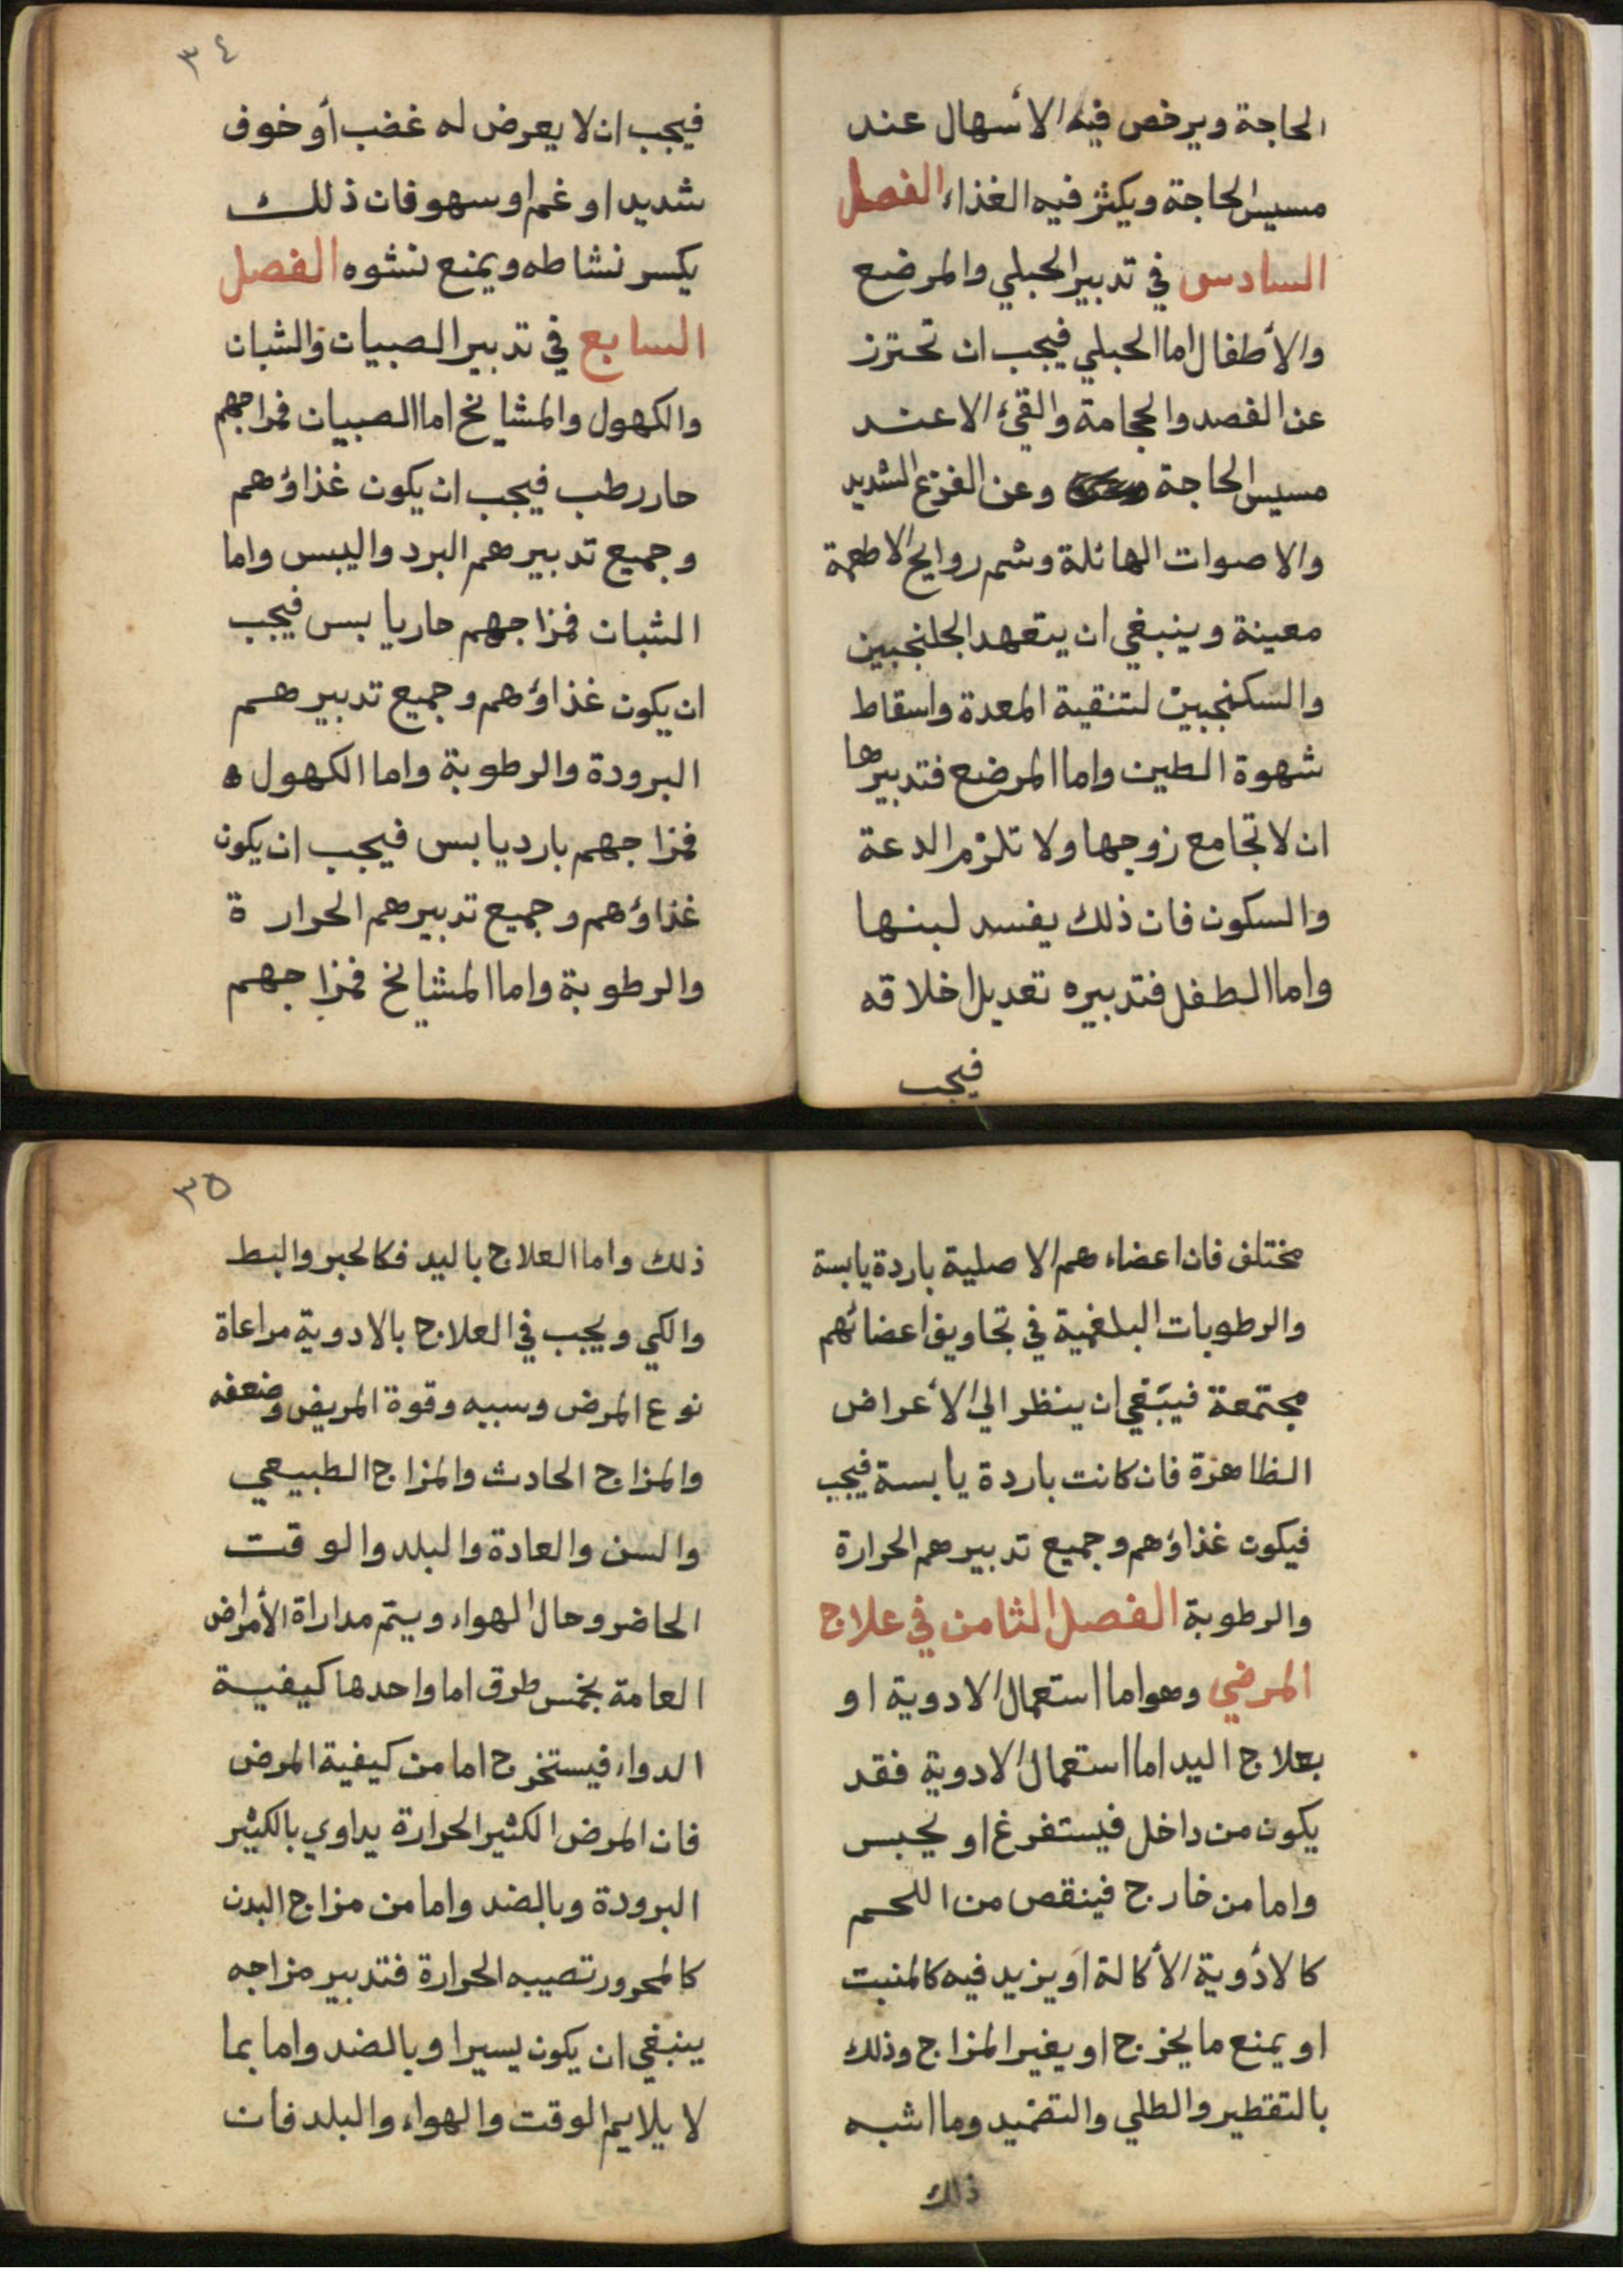 الحاجة ويرخص فيه الأسهال عند
مسيس الحاجة ويكثر فيه الغذاء الفصل
السادس في تدبير الحبلي والمرضع
والأطفال اما الحبلي فيجب ان تحترز
عن الفصد والحجامة والقئ الا عند
مسيس الحاجة وعن الفزع الشديد
والاصوات الهائلة وشم روايح الاطعمة
معينة وينبغي ان يتعهد الجلنجبين
والسكنجبين لتنقية المعدة واسقاط
شهوة الطين واما المرضع فتدبيرها
ان لا تجامع زوجها ولا تلزم الدعة
والسكون فان ذلك يفسد لبنها
واما الطفل فتدبيره تعديل اخلاقه
فيجب
٣٤
فيجب ان لا يعرض له غضب أو خوف
شديد او غم او سهو فان ذلك
يكسر نشاطه ويمنع نشوه الفصل
السابع في تدبير الصبيان والشبان
والكهول والمشايخ اما الصبيان فمزاجهم
حار رطب فيجب ان يكون غذاؤهم
وجميع تدبيرهم البرد واليبس واما
الشبان فمزاجهم حار يابس فيجب
ان يكون غذاؤهم وجميع تدبيرهم
البرودة والرطوبة واما الكهول
فمزاجهم بارد يابس فيجب ان يكون
غذاؤهم وجميع تدبيرهم الحرارة
والرطوبة واما المشايخ فمزاجهم
مختلف فان اعضاءهم الاصلية باردة يابسة
والرطوبات البلغمية في تجاويف اعضائهم
مجتمعة فينبغي ان ينظر الي الأعراض
الظاهرة فان كانت باردة يابسة فيجب
فيكون غذاؤهم وجميع تدبيرهم الحرارة
والرطوبة الفصل الثامن في علاج
المرضي وهو اما استعمال الادوية او
بعلاج اليد اما استعمال الادوية فقد
يكون من داخل فيستفرغ او يحبس
واما من خارج فينقص من اللحم
كالادوية الأكالة او يزيد فيه كالمنبت
او يمنع ما يخرج او يغير المزاج وذلك
بالتقطير والطلي والتضميد وما اشبه
ذلك
٣٥
ذلك واما العلاج باليد فكالجبر والبط
والكي ويجب في العلاج بالادوية مراعاة
نوع المرض وسببه وقوة المريض وضعفه
والمزاج الحادث والمزاج الطبيعي
والسن والعادة والبلد والوقت
الحاضر وحال الهواء ويتم مداراة الأمراض
العامة بخمس طرق اما واحدها كيفية
الدواء فيستخرج اما من كيفية المرض
فان المرض الكثير الحرارة يداوي بالكثير
البرودة وبالضد واما من مزاج البدن
كالمحرور تصيبه الحرارة فتدبير مزاجه
ينبغي ان يكون يسيرا وبالضد واما بما
لا يلايم الوقت والهواء والبلد فان